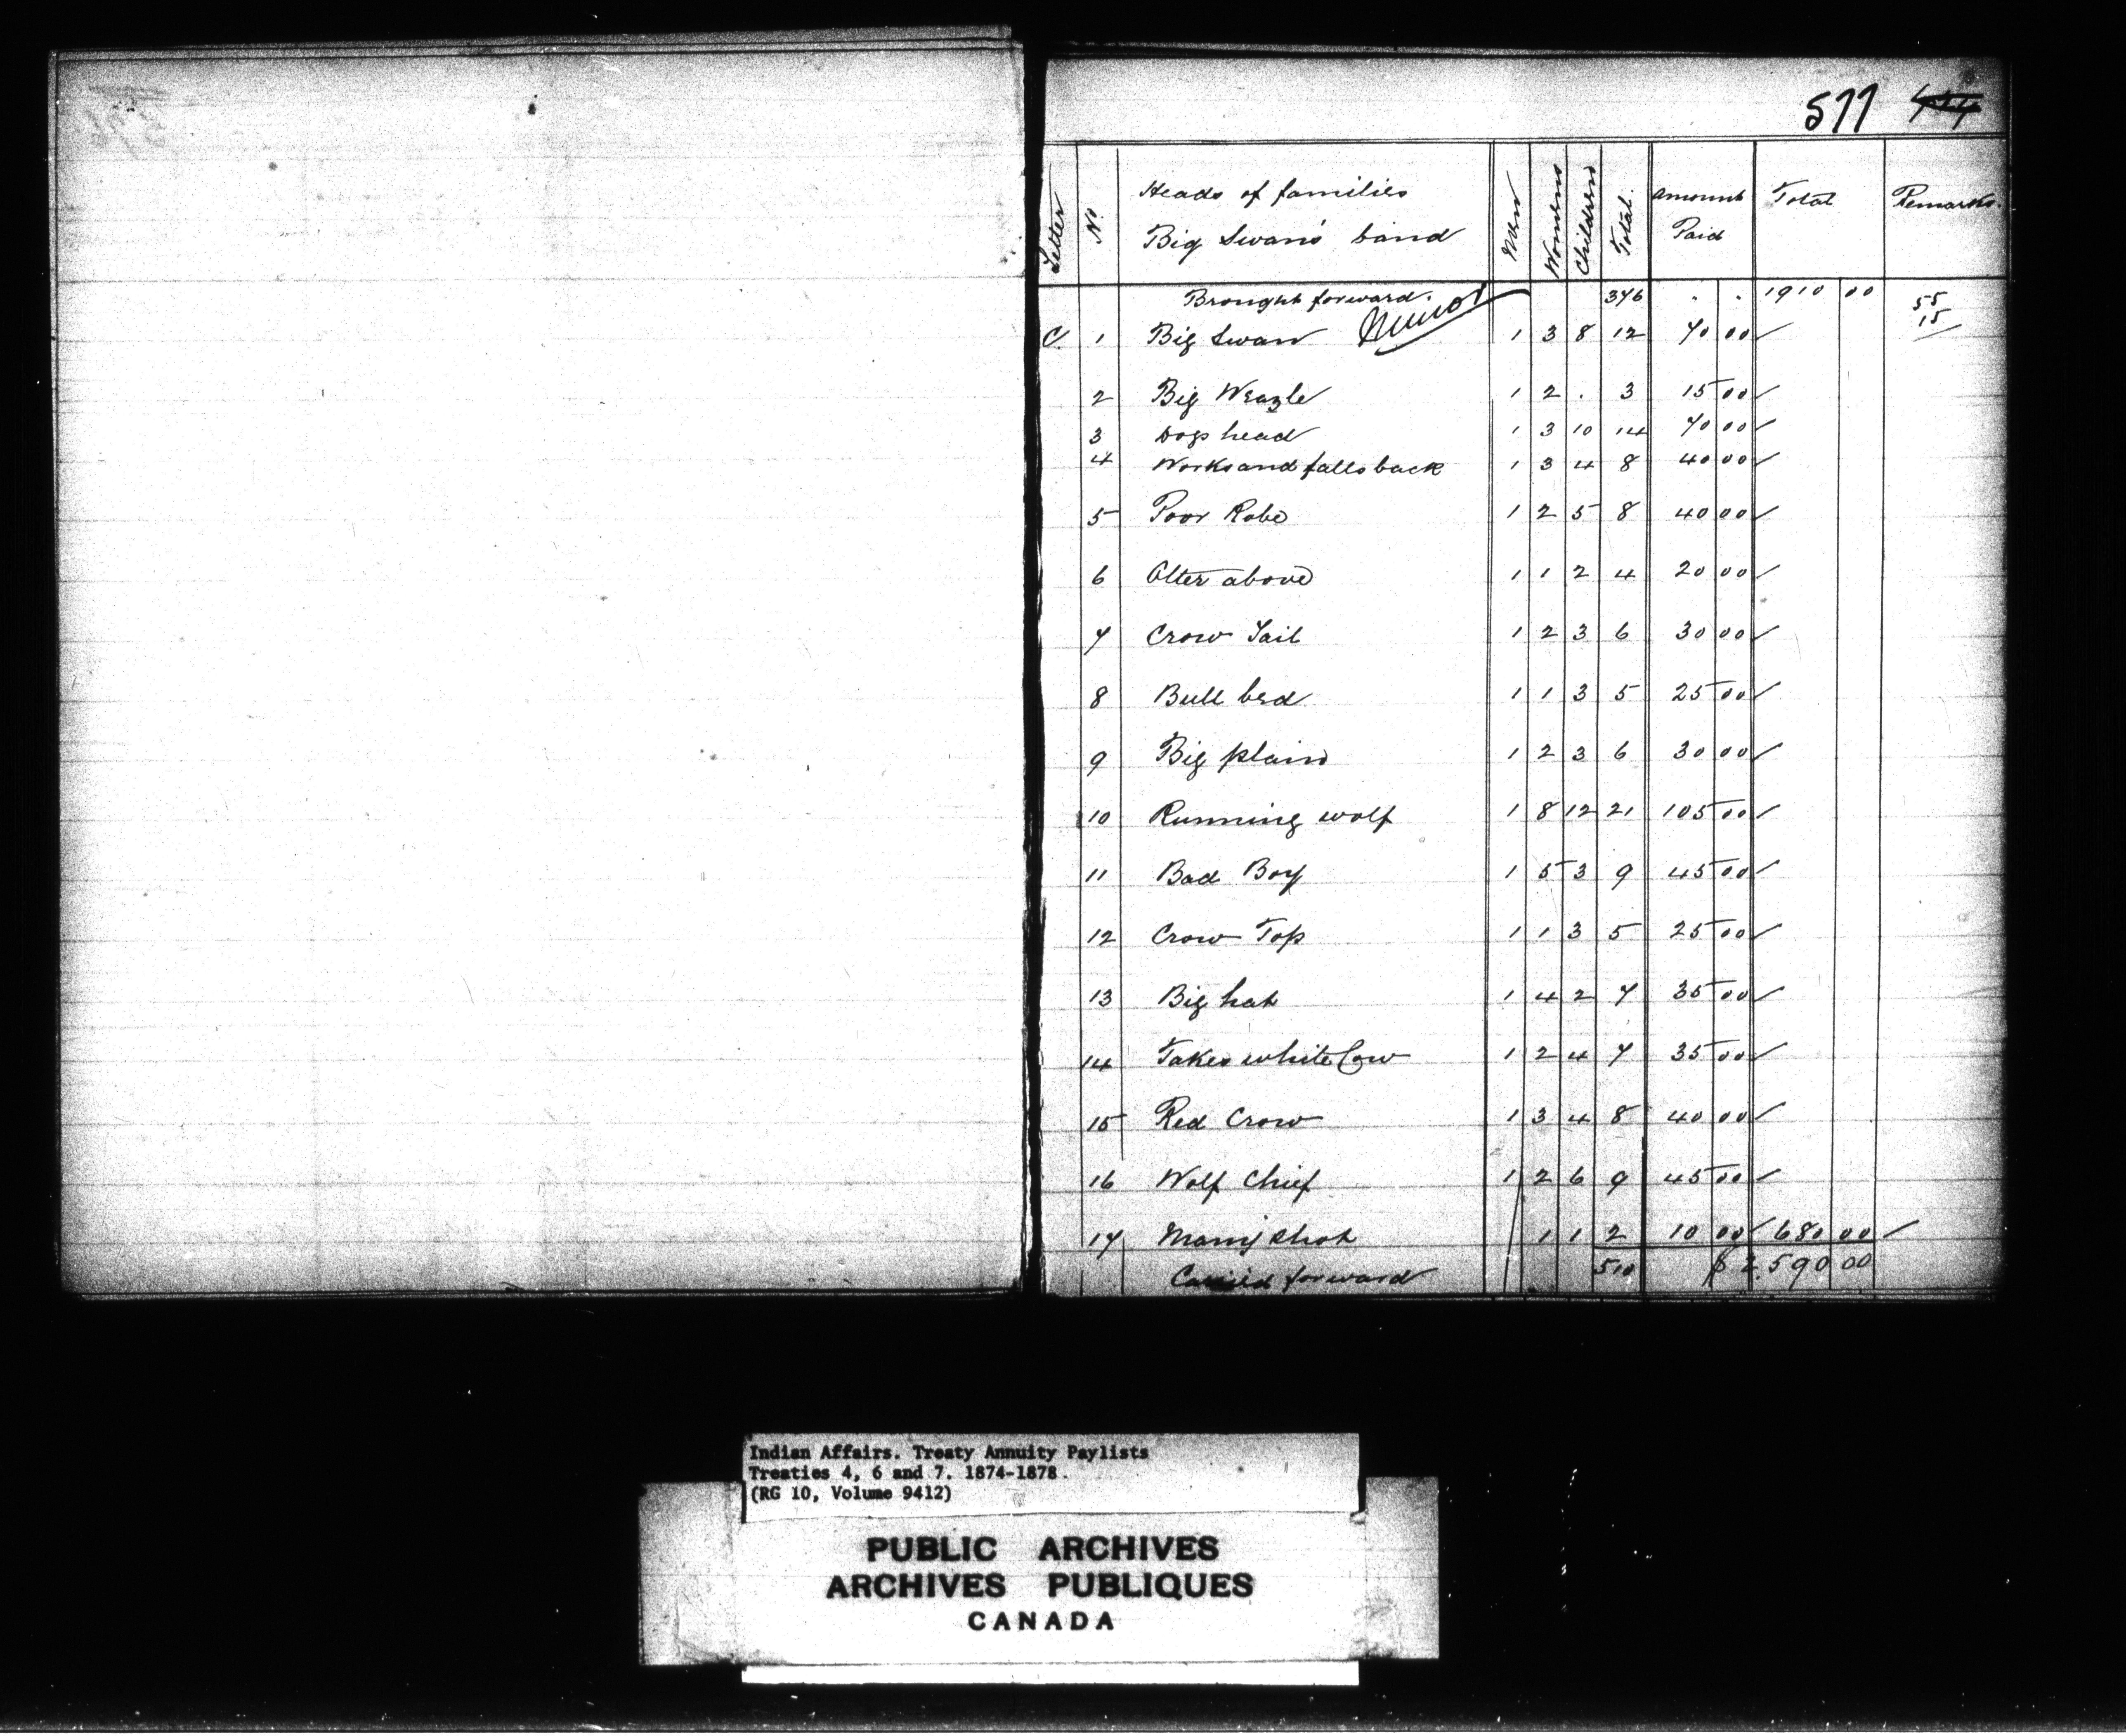 577
Letter No. Heads of families Big Swan's band Men Womens Children Total. Amount Paid Total Remarks.
Brought forward. 376 . . 1910 00 55
C 1 Big Swan Minor 1 3 8 12 70 00 ✓ 15
2 Big Weazle 1 2 . 3 15 00 ✓
3 Dogs head 1 3 10 14 70 00 ✓
4 Works and falls back 1 3 4 8 40 00 ✓
5 Poor Robe 1 2 5 8 40 00 ✓
6 Otter above 1 1 2 4 20 00 ✓
7 Crow Tail 1 2 3 6 30 00 ✓
8 Bull bed 1 1 3 5 25 00 ✓
9 Big plain 1 2 3 6 30 00 ✓
10 Running wolf 1 8 12 21 105 00 ✓
11 Bad Boy 1 5 3 9 45 00 ✓
12 Crow Top 1 1 3 5 25 00 ✓
13 Big hat 1 4 2 7 35 00 ✓
14 Takes white Cow 1 2 4 7 35 00 ✓
15 Red Crow 1 3 4 8 40 00 ✓
16 Wolf Chief 1 2 6 9 45 00 ✓
17 Many shot 1 1 2 10 00 ✓ 680 00 ✓
Carried forward 510 $ 2.590 00
Indian Affairs. Treaty Annuity Paylists
Treaties 4, 6 and 7. 1874-1878.
(RG 10, Volume 9412)
PUBLIC ARCHIVES
ARCHIVES PUBLIQUES
CANADA